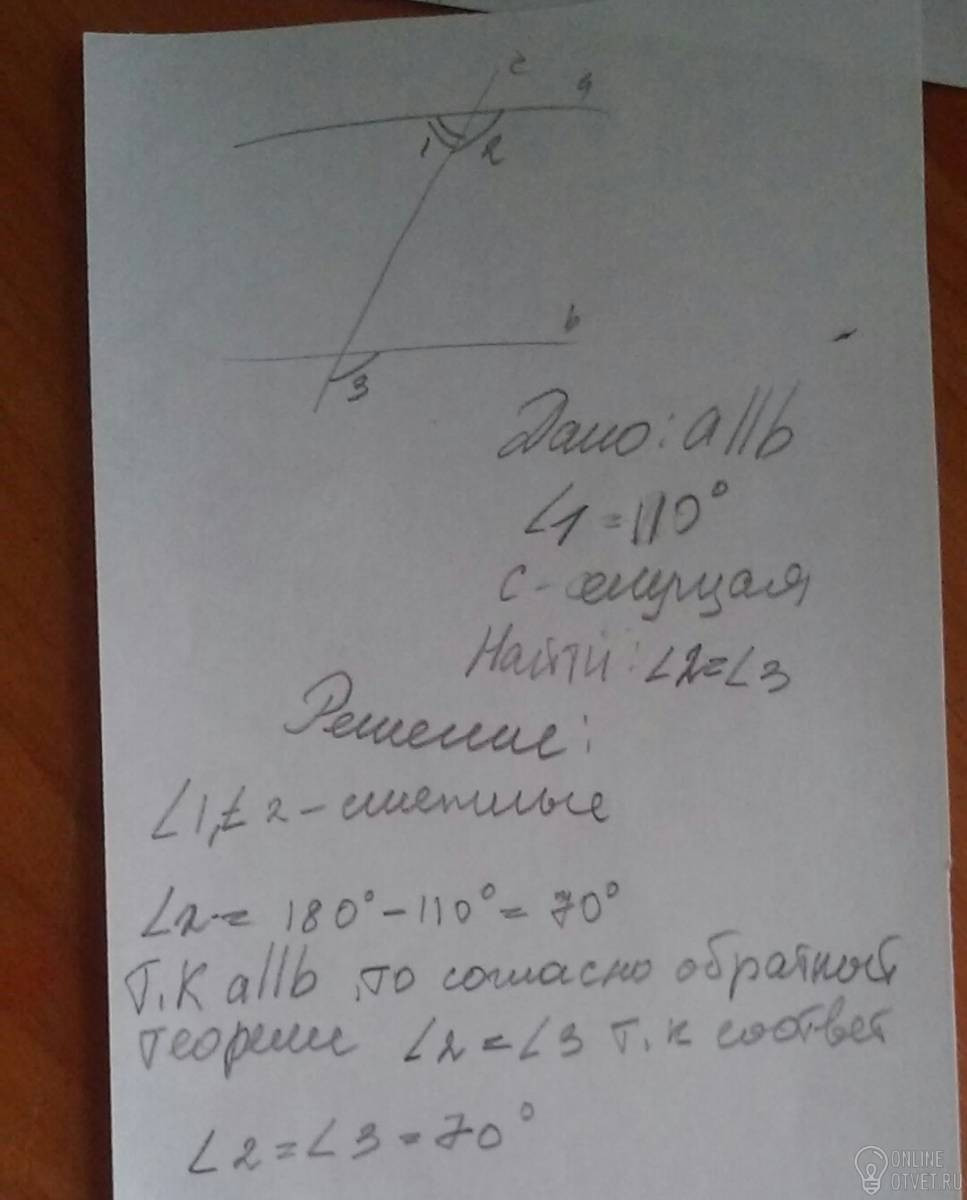 c
a
1 2
b
3
Дано: a||b
∠1 = 110°
c - секущая
Найти: ∠2=∠3
Решение:
∠1, ∠2 - смежные
∠2 = 180° - 110° = 70°
Т.к a||b, то согласно обратной
теореме ∠2 = ∠3 т.к соответ
∠2 = ∠3 = 70°
ONLINE
OTVET.RU